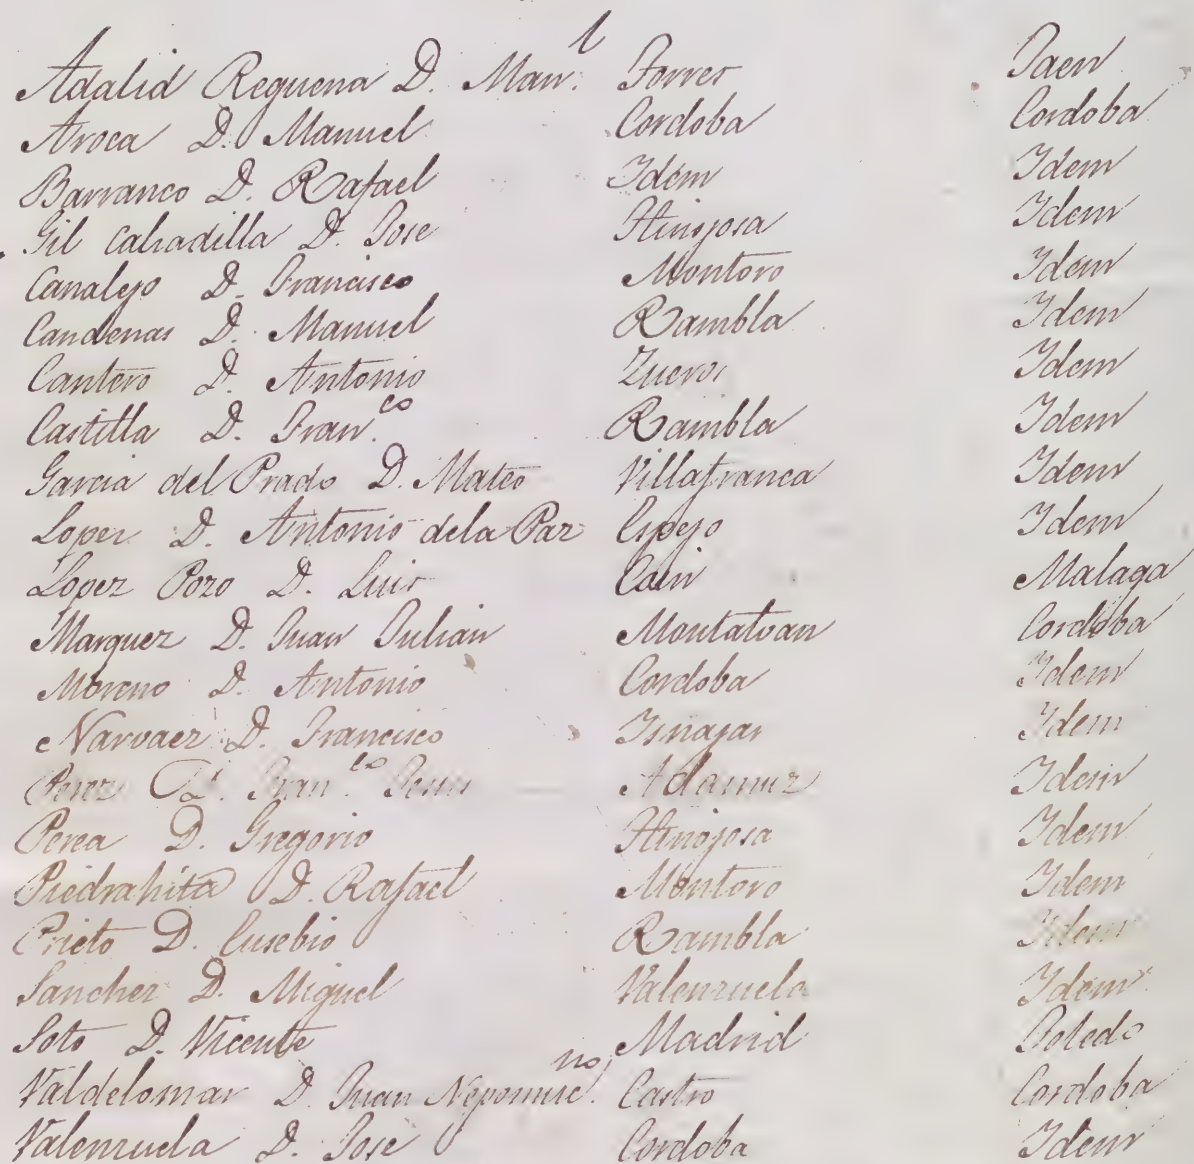 Adalid Requena D. Man.l Torres Jaen
Aroca D. Manuel Cordoba Cordoba
Barranco D. Rafael Idem Idem
Gil Calzadilla D. Jose Hinojosa Idem
Canalejo D. Francisco Montoro Idem
Candenas D. Manuel Rambla Idem
Cantero D. Antonio Zueros Idem
Castilla D. Fran.co Rambla Idem
Garcia del Prado D. Mateo Villafranca Idem
Lopez D. Antonio dela Paz Espejo Idem
Lopez Pozo D. Luis Cain Malaga
Marquez D. Juan Julian Montalvan Cordoba
Moreno D. Antonio Cordoba Idem
Narvaez D. Francisco Isnajar Idem
Perez D. Fran.co Jesus Adamuz Idem
Perea D. Gregorio Hinojosa Idem
Piedrahita D. Rafael Montoro Idem
Prieto D. Eusebio Rambla Idem
Sanchez D. Miguel Valenzuela Idem
Soto D. Vicente Madrid Toledo
Valdelomar D. Juan Nepomuc.no Castro Cordoba
Valenzuela D. Jose Cordoba Idem